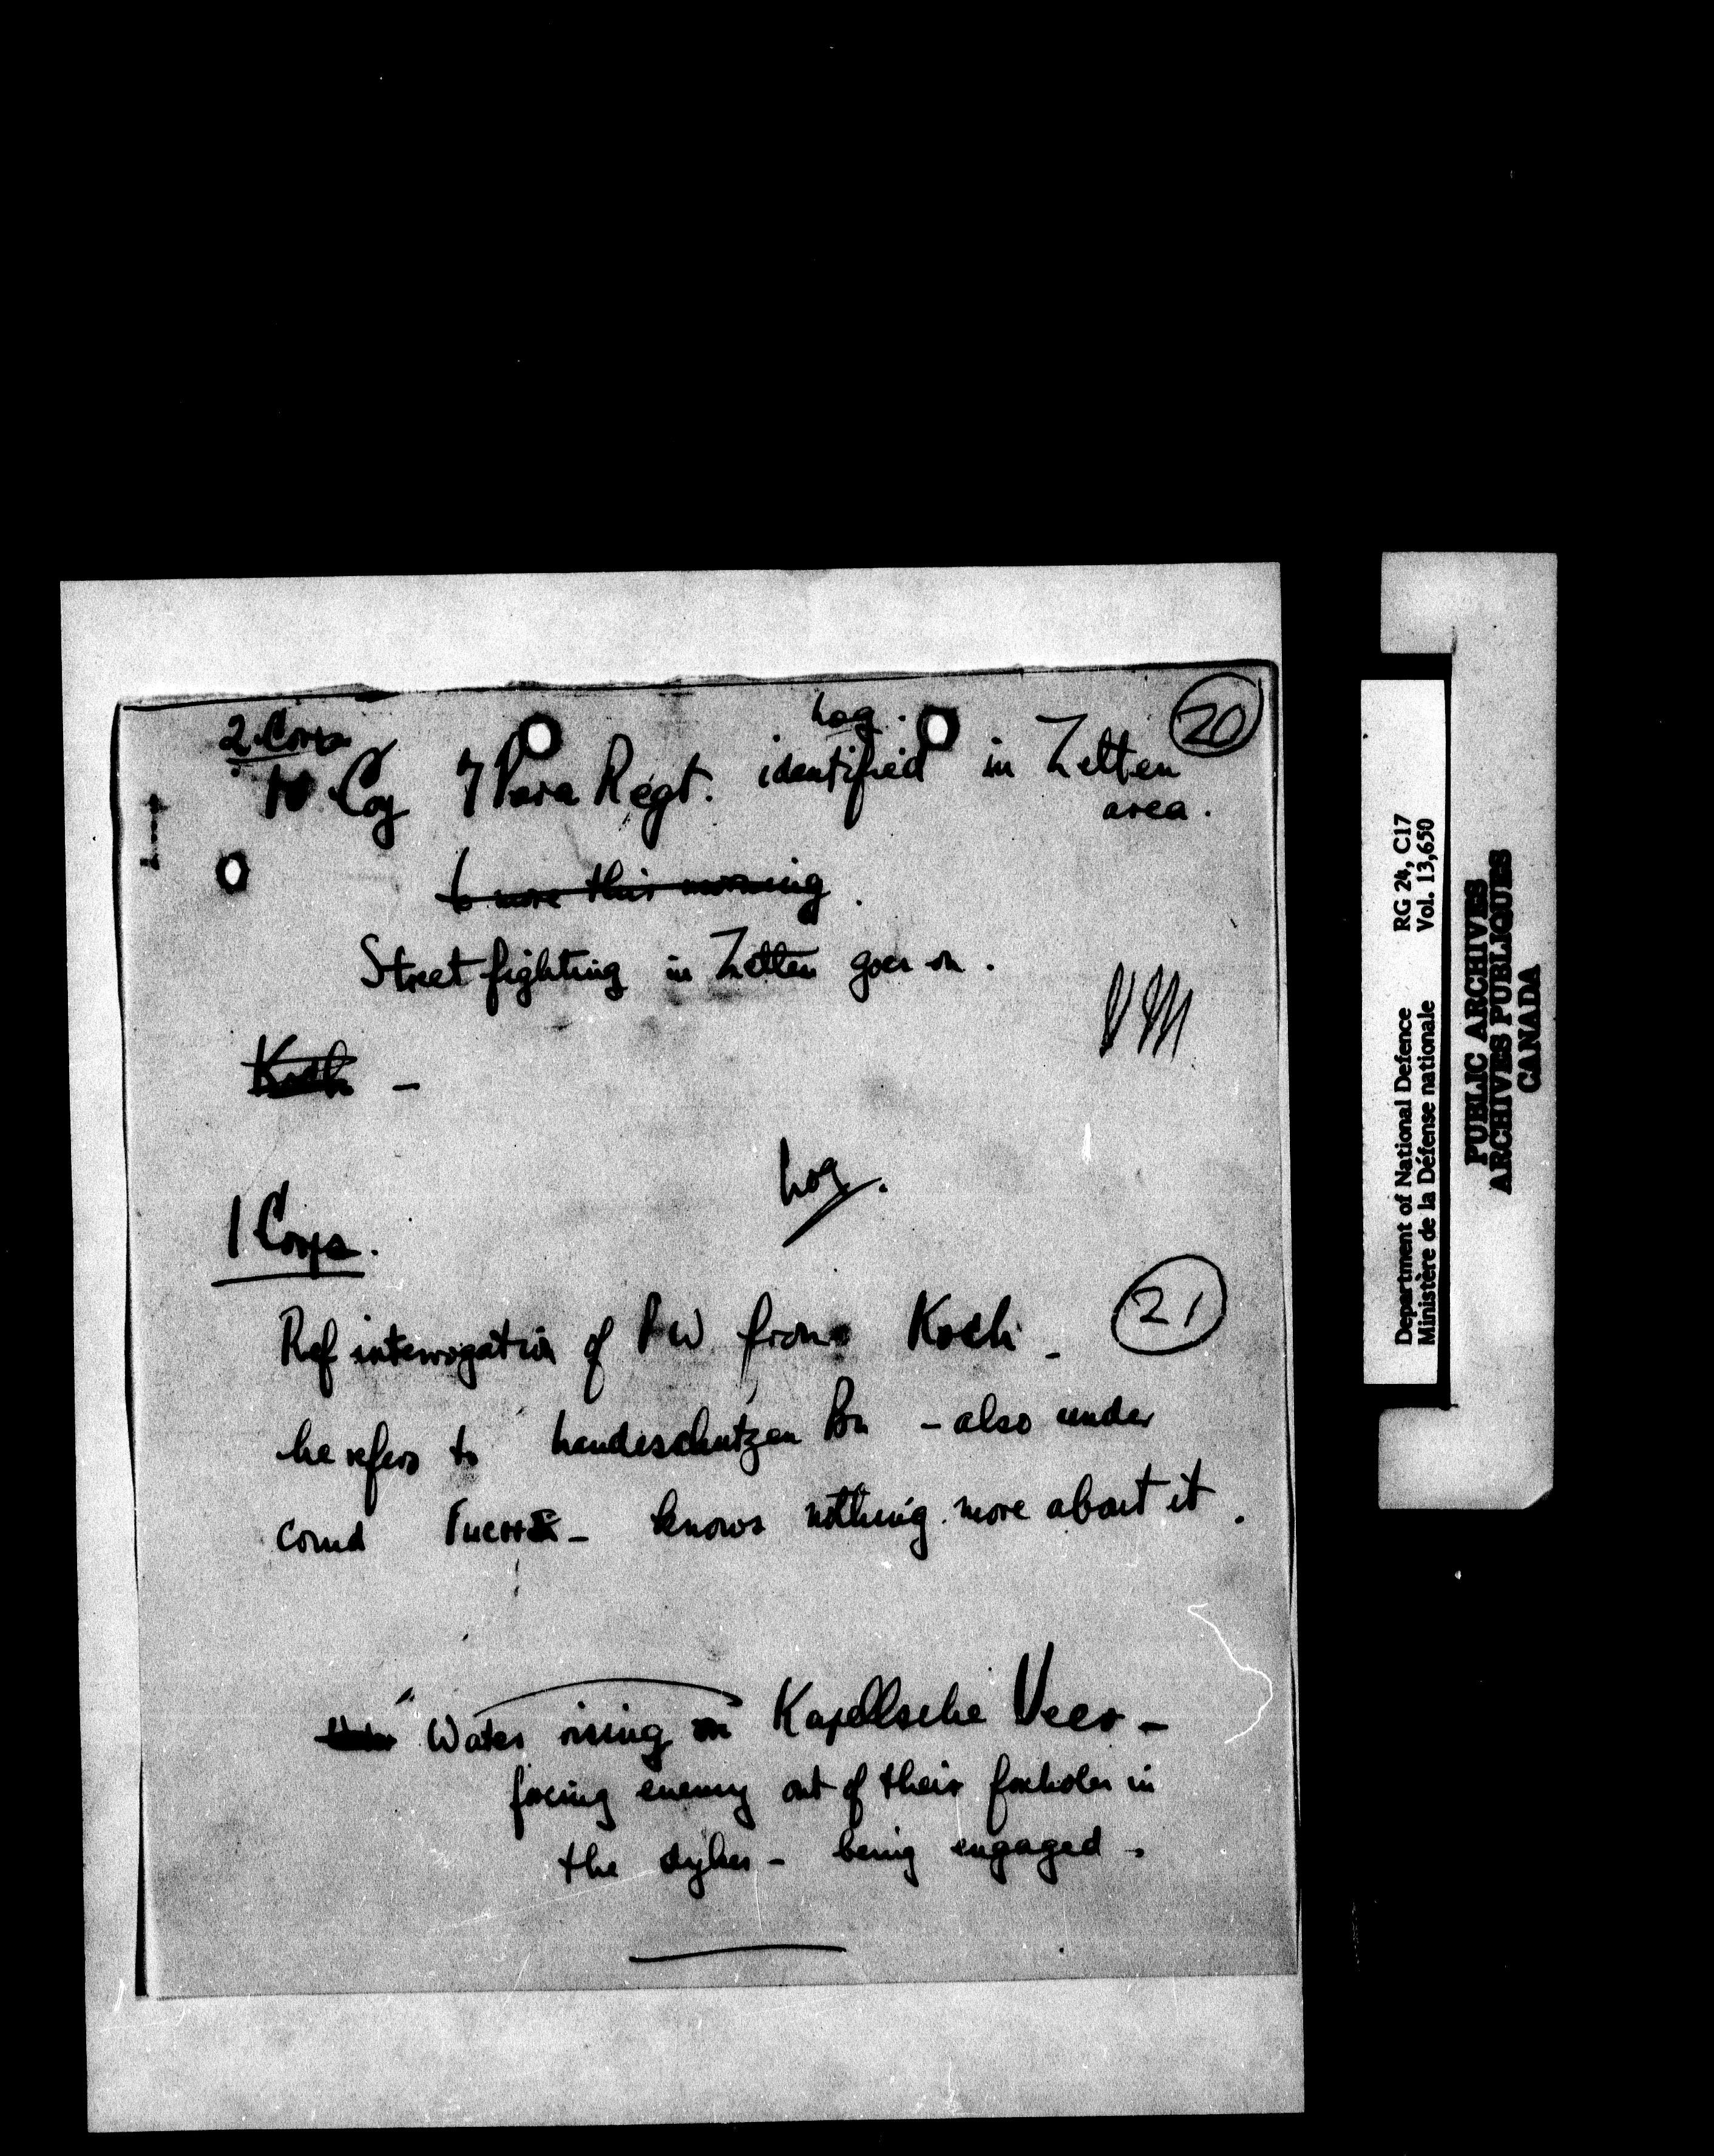 2 Corps
Log.
20
10 Coy 7 Para Regt. identified in Zetten
area.
to more this morning.
Street fighting in Zetten goes on.
Koch -
Log.
1 Corps.
21
Ref interrogation of PW from Koch -
he refers to Landeschutzen Bn - also under
comd - knows nothing more about it.
Water Water rising on Kapellsche Veer -
forcing enemy out of their foxholes in
the dykes - being engaged.
Department of National Defence RG 24, C17
Ministère de la Défense nationale Vol. 13,650
PUBLIC ARCHIVES
ARCHIVES PUBLIQUES
CANADA